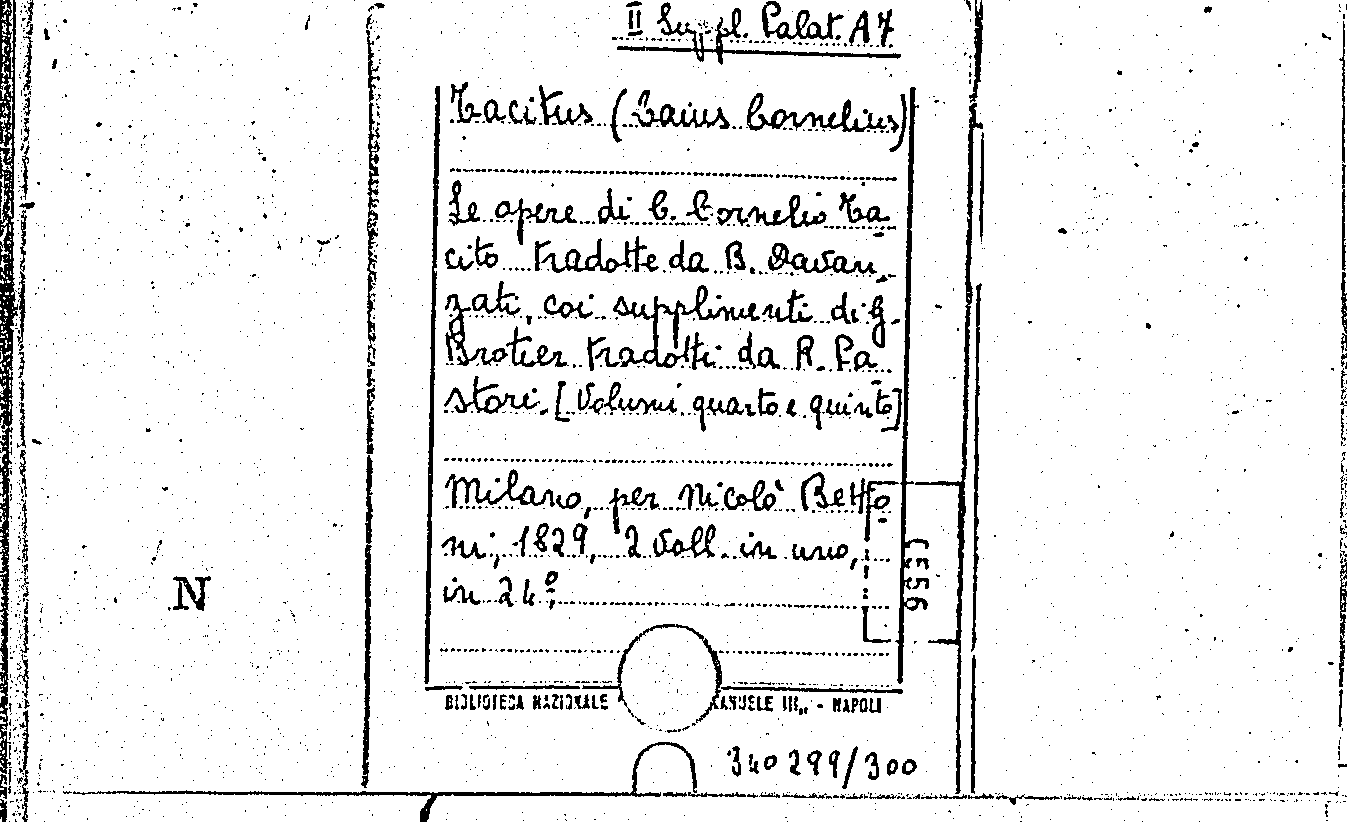 II Suppl. Palat. A 7
Tacitus (Caius Cornelius)
Le opere di C. Cornelio Ta-
cito tradotte da B. Davan-
zati, coi supplimenti di G.
Brotier tradotti da R. Pa-
stori. [Volumi quarto e quinto]
Milano, per Nicolò Betto-
ni, 1829, 2 voll. in uno,
in 24º.
N
BIBLIOTECA NAZIONALE ANUELE III,, - NAPOLI
340 299/300